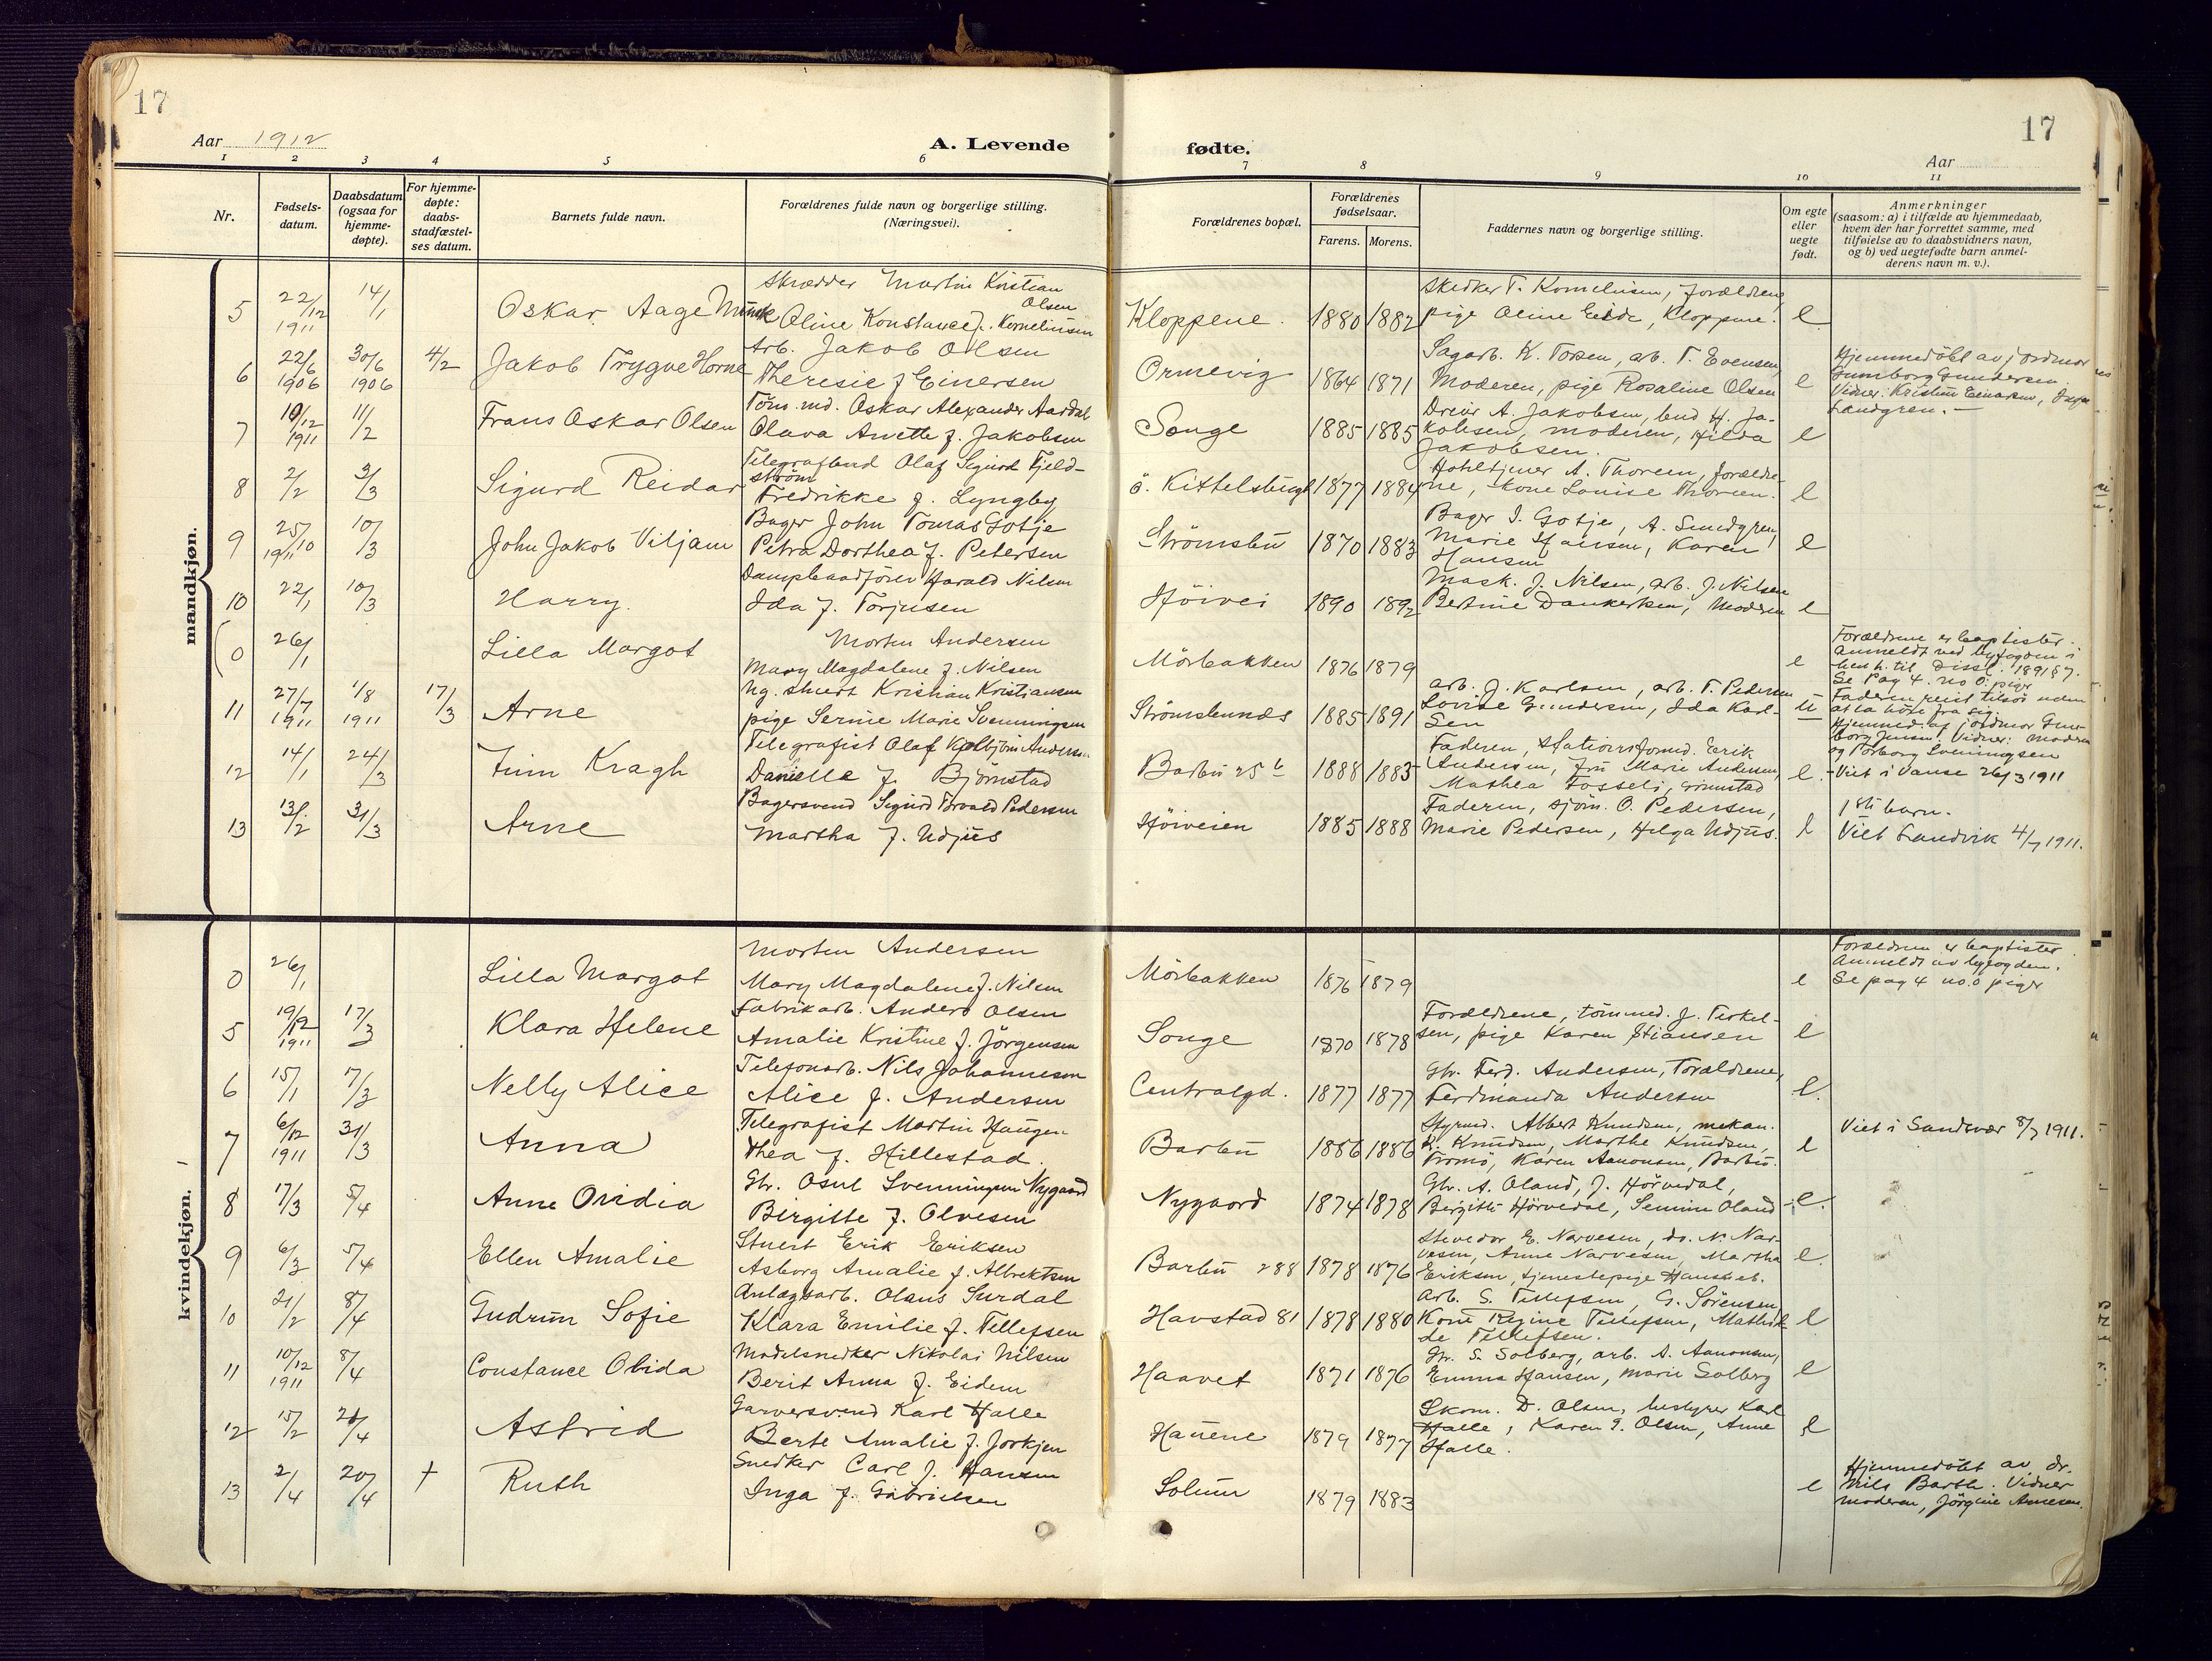 17
17
Aar 1912
A. Levende
fødte.
Aar
1 2 3 4 5 6 7 8 9 10 11
Nr.
Fødsels-
datum.
Daabsdatum
(ogsaa for
hjemme-
døpte).
For hjemme-
døpte:
daabs-
stadfæstel-
ses datum.
Barnets fulde navn.
Forældrenes fulde navn og borgerlige stilling.
(Næringsvei).
Forældrenes bopæl.
Forældrenes
fødselsaar.
Farens. Morens.
Faddernes navn og borgerlige stilling.
Om egte
eller
uegte
født.
Anmerkninger
(saasom: a) i tilfælde av hjemmedaab,
hvem der har forrettet samme, med
tilføielse av to daabsvidners navn,
og b) ved uegtefødte barn anmel-
derens navn m. v.).
mandkjøn.
5 22/12 1911 14/1 Oskar Aage Munk
Skrædder Martin Kristian
Olsen
Oline Konstance f. Korneliusen
Kloppene. 1880 1882
Snedker T. Korneliusen, Forældrene,
pige Oline Eide, Kloppene. e
6 22/6 1906 30/6 1906 4/2 Jakob Trygve Horne
Arb. Jakob Olsen
Theresie f Einersen
Ormevig 1864 1871
Sagarb. K. Tossen, arb. T. Evensen,
Moderen, pige Rosaline Olsen e
Hjemmedöbt av jordmor
Gunborg Gundersen
Vidner: Kristine Einarsen, Inga
Landgren. —
7 10/12 1911 11/2 Frans Oskar Olsen
Töm. md. Oskar Alexander Aardal
Olava Anette f. Jakobsen
Songe 1885 1885
Driver A. Jakobsen, lend H. Ja-
kobsen, moderen, Hilda
Jakobsen. e
8 2/2 3/3 Sigurd Reidar
Telegrafbud Olaf Sigurd Fjeld-
ström
Fredrikke f. Lyngby
ö. Kittelsbugt 1877 1884
Hoteltjener A. Thorsen, forældre-
ne, kone Louise Thorsen. e
9 25/10 1911 10/3 John Jakob Viljam
Bager John Tomas Gotje
Petra Dorthea f. Petersen
Strömsbu 1870 1883
Bager J. Gotje, A. Sundgren,
Marie Hansen, Karen
Hansen e
10 22/1 10/3 Harry.
Dampbaadförer Harald Nilsen
Ida f. Torjusen
Höivei 1890 1892
Mask. J. Nilsen, arb. J. Nilsen
Bertine Dankertsen, Moderen e
0 26/1 Lilla Margot
Morten Andersen
Mary Magdalene f. Nilsen
Mörbakken 1876 1879 e
Forældrene er baptister.
Anmeldt ved byfogden i
henh. til Dissl. 1891 § 7.
Se Pag 4. no 0. piger
11 27/7 1911 1/8 1911 17/3 Arne
Ug. stuert Kristian Kristiansen
pige Sernie Marie Svenningsen
Strömsbunds 1885 1891
arb. J. Karlsen, arb. T. Pedersen
Lovise Gundersen, Ida Karl-
sen u
Faderen reist tilsös uden
at la höre fra sig.
Hjemmed. af jordmor Gun-
borg Jensen. Vidner: Moderen
og Torborg Svenningsen
12 14/1 24/3 Finn Kragh
Telegrafist Olaf Kolbjörn Andersen
Danielle f. Björnstad
Barbu 25 b 1888 1883
Faderen, Stationsformd. Erik
Andersen, Fru Marie Andersen,
Mathea Fosseli, Grimstad e.
Viet i Vanse 26/3 1911
13 13/2 31/3 Arne
Bagersvend Sigurd Torvald Pedersen
Martha f. Udjus
Höiveien 1885 1888
Faderen, sjöm. O. Pedersen,
Marie Pedersen, Helga Udjus. e
1ste barn.
Viet Landvik 4/7 1911.
kvindekjøn.
0 26/1 Lilla Margot
Morten Andersen
Mary Magdalene f. Nilsen
Mörbakken 1876 1879 e
Forældrene er baptister.
Anmeldt av byfogden.
Se pag 4 no. 0 piger
5 19/12 1911 17/3 Klara Helene
Fabrikarb. Anders Olsen
Amalie Kristine f. Jörgensen
Songe 1870 1878
Forældrene, tömmed. J. Terkel-
sen, pige Karen Stiansen e
6 15/1 17/3 Nelly Alice
Telefonarb. Nils Johannesen
Alice f. Andersen
Centralgd. 1877 1877
Gbr. Ferd. Andersen, Forældrene,
Ferdinanda Andersen e.
7 6/12 1911 31/3 Anna
Telegrafist Martin Haugen
Thea f. Hillestad.
Barbu 1886 1886
Styrmd. Albert Knudsen, mekan.
K. Knudsen, Marthe Knudsen,
Tromö, Karen Aanonsen, Barbu. e
Viet i Sandsvær 8/7 1911.
8 17/3 5/4 Anne Ovidia
Gbr. Osul Svenningsen Nygaard
Birgitte f. Olvesen
Nygaard 1874 1878
Gbr. A. Oland, J. Hörvedal,
Birgitte Hörvedal, Semine Oland e.
9 6/3 5/4 Ellen Amalie
Stuert Erik Eriksen
Asborg Amalie f. Albrektsen
Barbu 288 1878 1876
Stevedor E. Narvesen, do. N. Nar-
vesen, Anne Narvesen, Martha
Eriksen, tjenestepige e.
10 21/2 8/4 Gudrun Sofie
Anlægsarb. Olaus Surdal
Klara Emilie f. Tellefsen
Havstad 81 1878 1880
Arb. S. Tellefsen, G. Sörensen,
Kone Regine Tellefsen, Mathil-
de Tellefsen. e
11 10/12 1911 8/4 Constance Obida
Modelsnedker Nikolai Nilsen
Berit Anna f. Eidem
Haavet 1871 1876
Gbr. S. Solberg, arb. A. Aanonsen,
Emma Hansen, Marie Solberg e
12 15/2 /4 Astrid
Garversvend Karl Halle
Berte Amalie f. Jorkjen
Hauene 1879 1877
Skom. D. Olsen, bestyrer Karl
Halle, Karen G. Olsen, Anne
Halle. e
13 2/4 20/4 † Ruth
Snedker Carl J. Hansen
Inga f. Gabrielsen
Solum 1879 1883 e
Hjemmedöbt av dr.
Nils Barth. Vidner
moderen, Jörgine Arnesen.